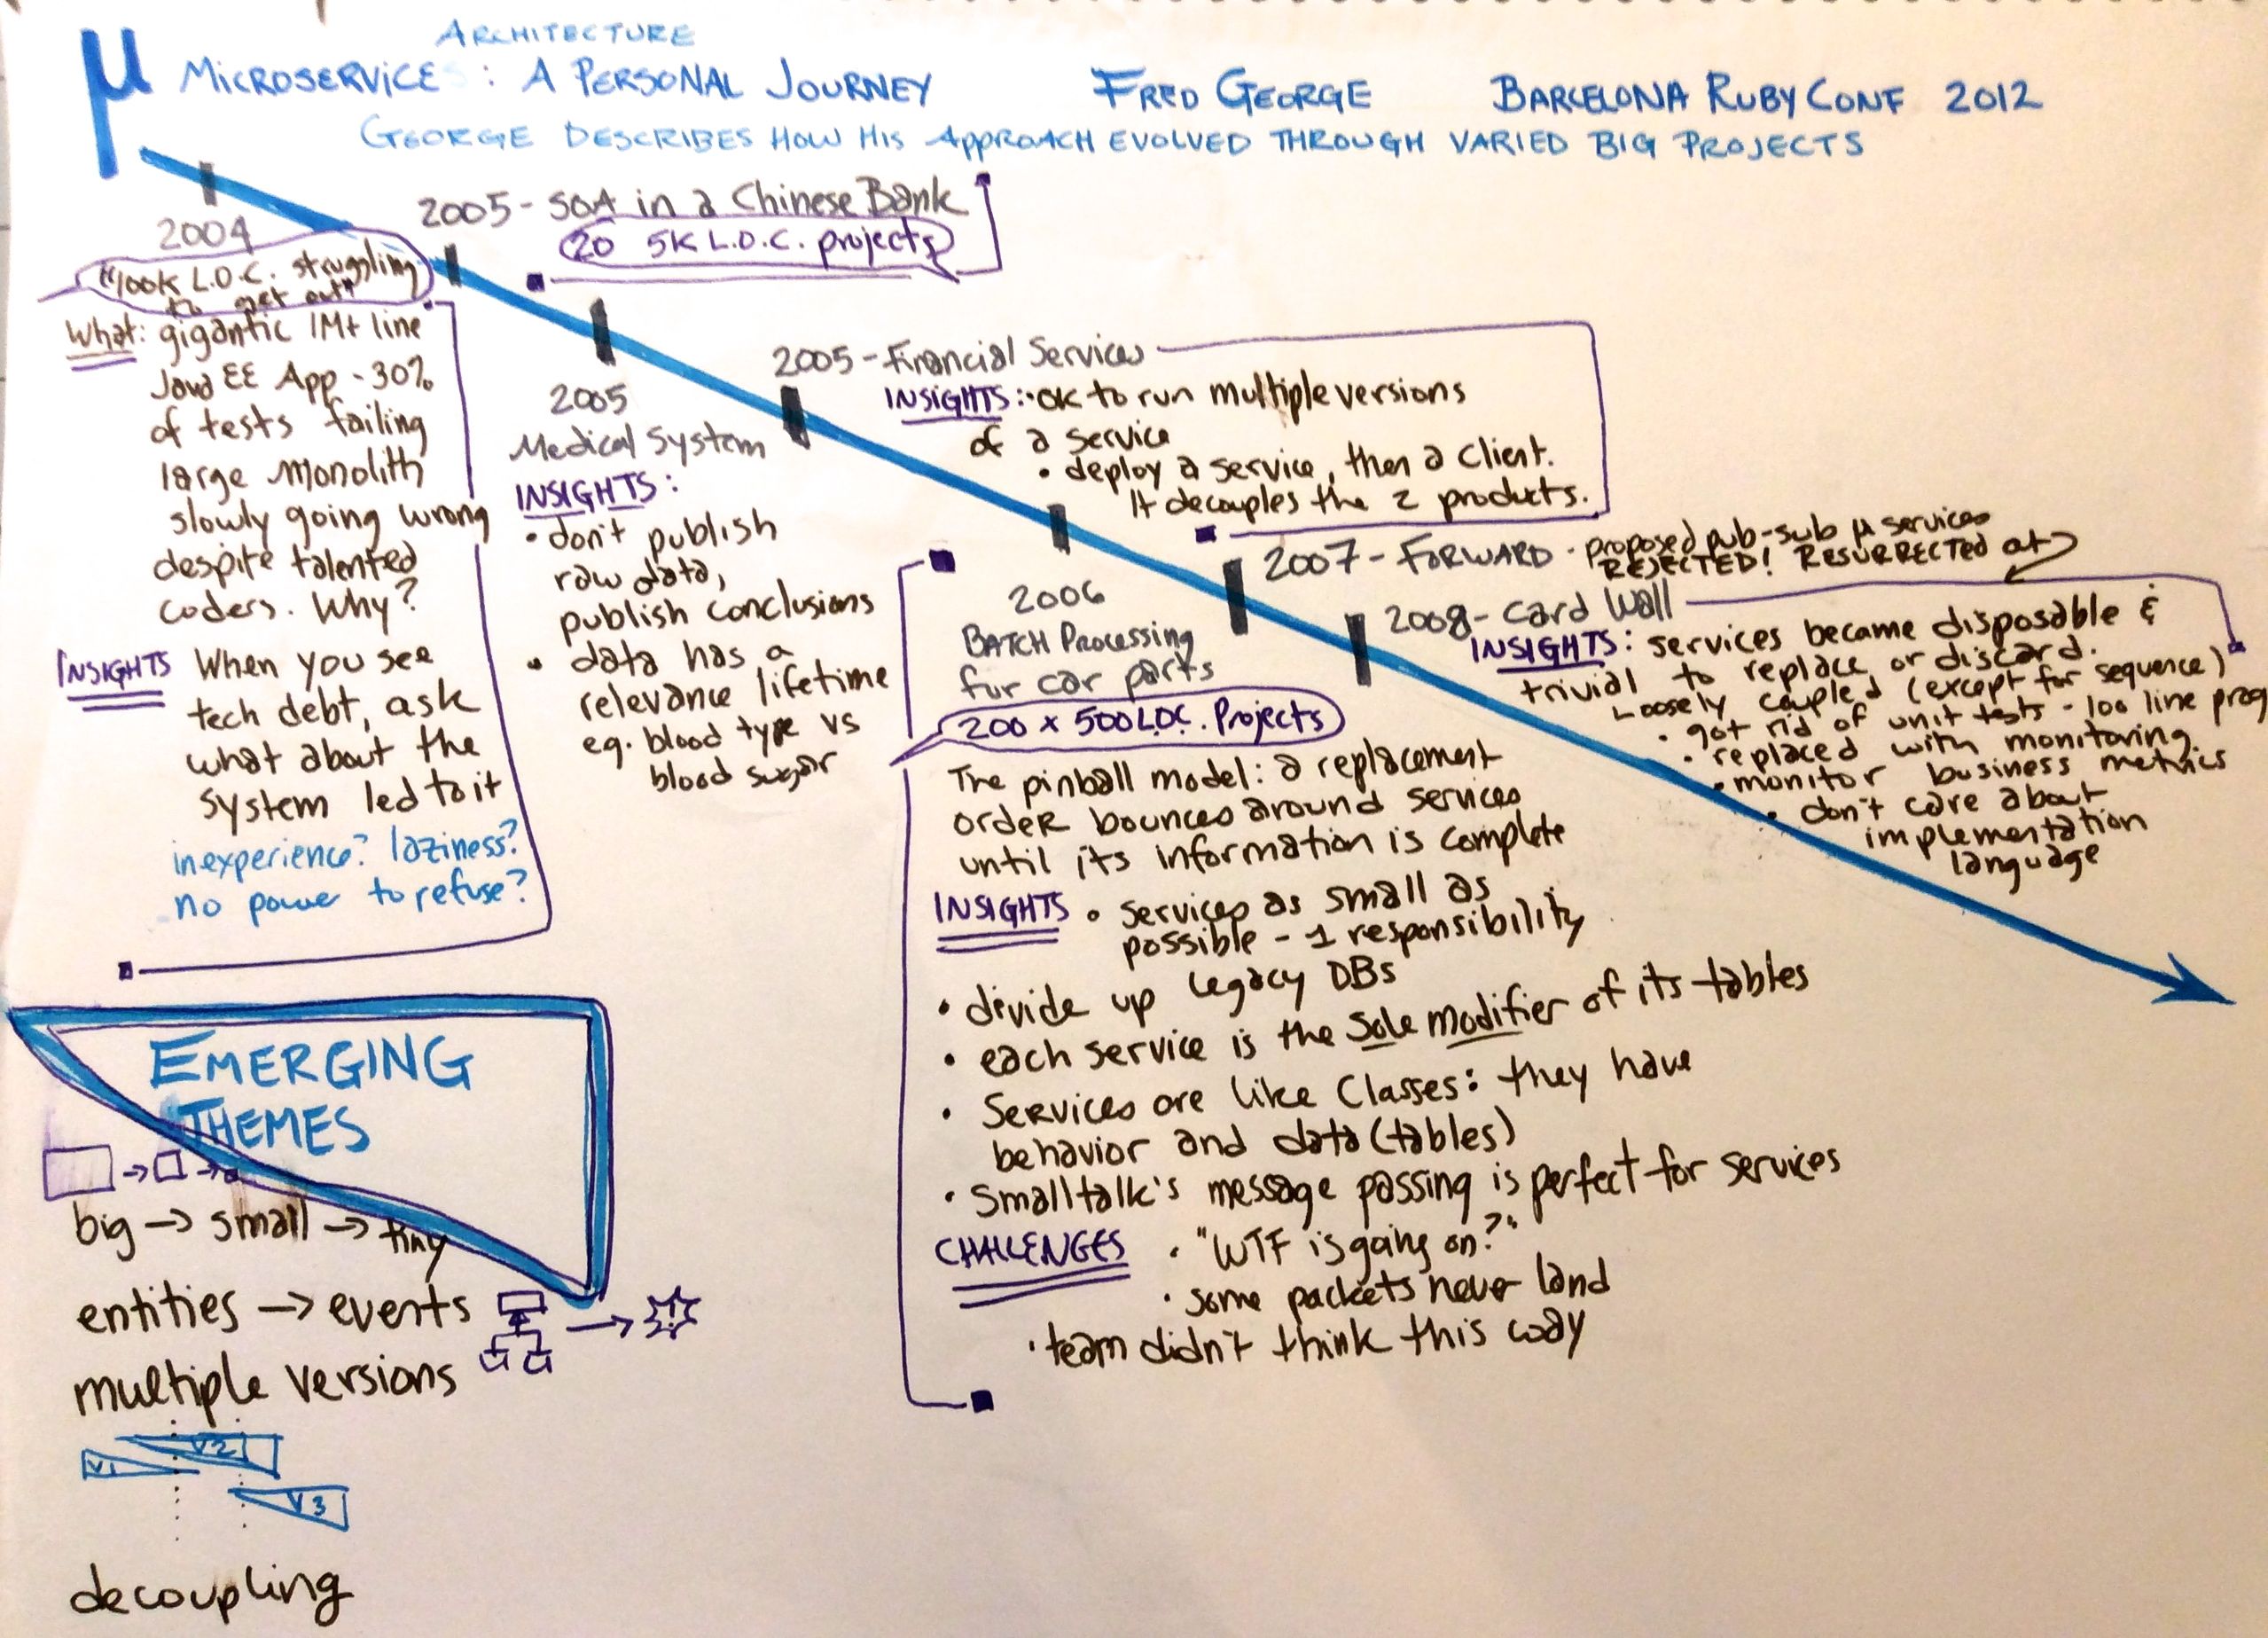 µ
ARCHITECTURE
MICROSERVICE : A PERSONAL JOURNEY FRED GEORGE BARCELONA RUBY CONF 2012
GEORGE DESCRIBES HOW HIS APPROACH EVOLVED THROUGH VARIED BIG PROJECTS
2004
"100K L.O.C. struggling
to get out"
What: gigantic 1M+ line
Java EE App - 30%
of tests failing
large monolith
slowly going wrong
despite talented
coders. Why?
INSIGHTS When you see
tech debt, ask
what about the
system led to it
inexperience? laziness?
no power to refuse?
2005 - SOA in a Chinese Bank
20 5K L.O.C. projects
2005
Medical System
INSIGHTS:
• don't publish
raw data,
publish conclusions
• data has a
relevance lifetime
eg. blood type vs
blood sugar
2005 - Financial Services
INSIGHTS: • OK to run multiple versions
of a service
• deploy a service, then a client.
It decouples the 2 products.
2006
BATCH Processing
for car parts
200 x 500 L.O.C. Projects
The pinball model: a replacement
order bounces around services
until its information is complete
INSIGHTS • services as small as
possible - 1 responsibility
• divide up legacy DBs
• each service is the sole modifier of its tables
• Services are like Classes: they have
behavior and data (tables)
• Smalltalk's message passing is perfect for services
CHALLENGES • "WTF is going on?"
• some packets never land
• team didn't think this way
2007 - FORWARD - proposed pub-sub µ services
REJECTED! RESURRECTED at
2008 - Card Wall
INSIGHTS: services became disposable &
trivial to replace or discard.
Loosely coupled (except for sequence)
• got rid of unit tests - 100 line prog
• replaced with monitoring
• monitor business metrics
• don't care about
implementation
language
EMERGING
THEMES
big → small → tiny
entities → events
multiple versions
V1
V2
V3
decoupling